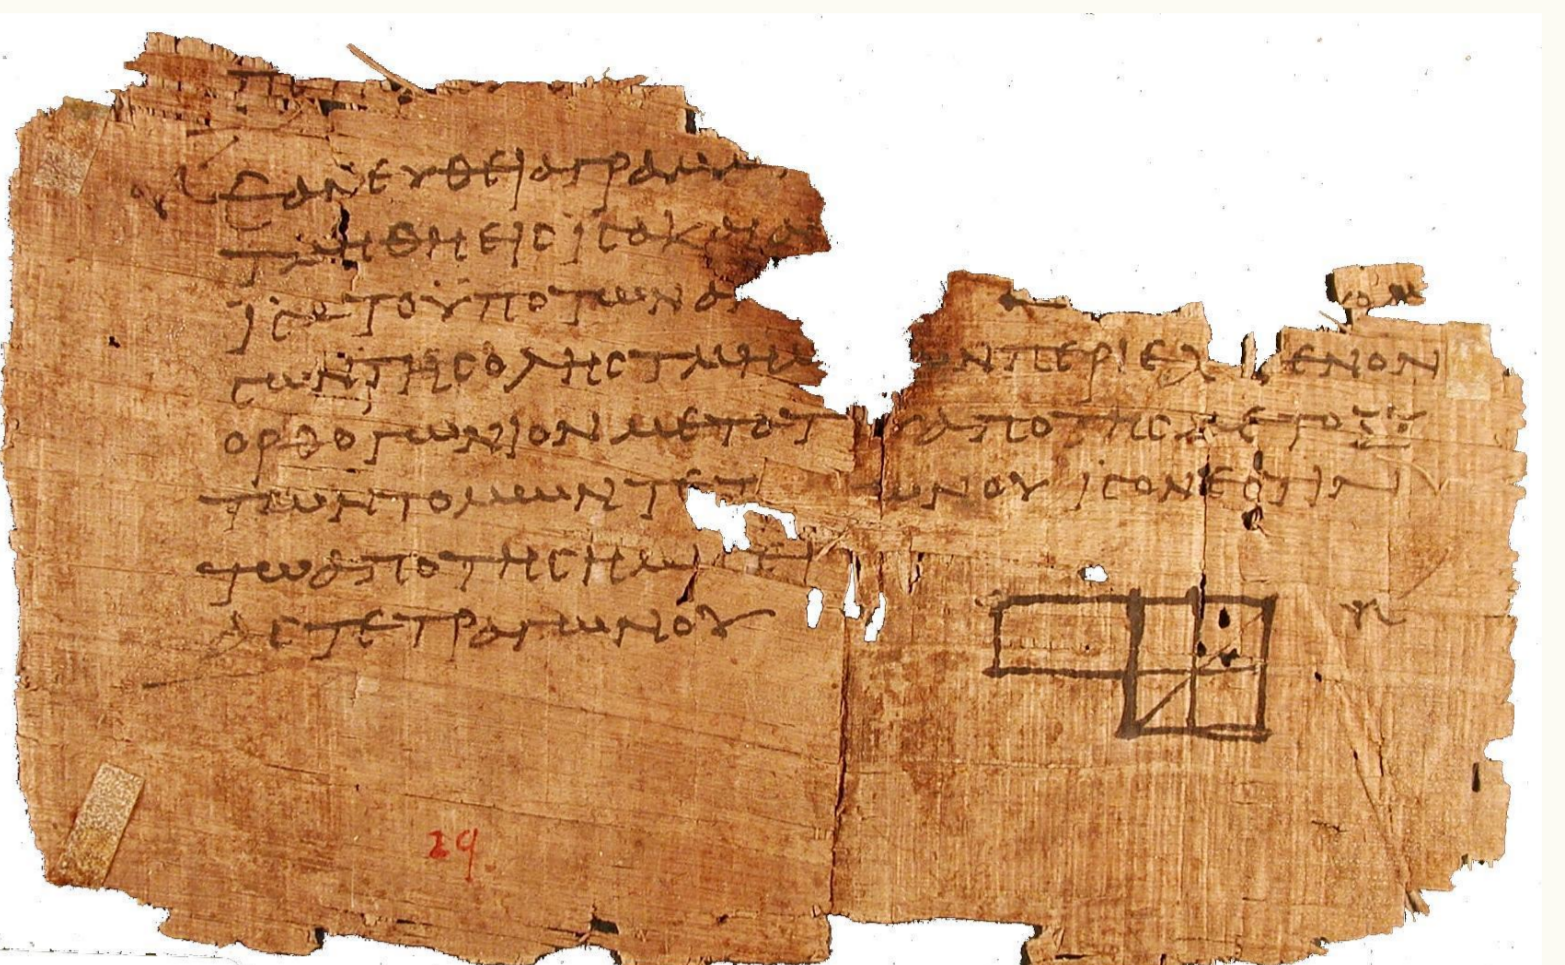 ΕΑΝ ΕΥΘΕΙΑ ΓΡΑΜΜ
ΤΜΗΘΗ ΕΙϹ ΙϹΑ Κ
ΙϹΑ ΤΟ ΥΠΟ ΤΩΝ Α
ϹΩΝ ΤΗϹ ΟΛΗϹ ΤΜΗΜ ΩΝ ΠΕΡΙΕΧ ΕΝΟΝ
ΟΡΘΟΓΩΝΙΟΝ ΜΕΤΑ ΤΟΥ ΑΠΟ ΤΗϹ ΜΕΤΟΞΥ
ΤΩΝ ΤΟΜΩΝ ΤΕΤ ΩΝΟΥ ΙϹΟΝ ΕϹΤΙΝ
ΤΩ ΑΠΟ ΤΗϹ ΗΜΙ
ΑϹ ΤΕΤΡΑΓΩΝΟΥ
29